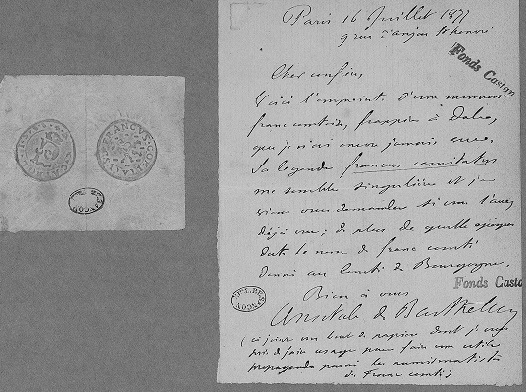 Paris 16 Juillet 1877
9 rue d'anjou St honoré
Fonds Castan
Cher confrère,
Voici l'empreinte d'une monnaie
franc comtoise, frappée à Dole,
que je n'ai encore jamais vue.
Sa légende francus comitatus
me semble singulière et je
viens vous demander si vous l'avez
déjà vue; de plus de quelle époque
date le nom de franc comté
donné au Comté de Bourgogne.
Fonds Casta
Bien à vous
Anatole de Barthélemy
(ci joint un bout de papier dont je vous
prie de faire usage pour faire une utile
propagande parmi les numismatistes
de Franc comté)